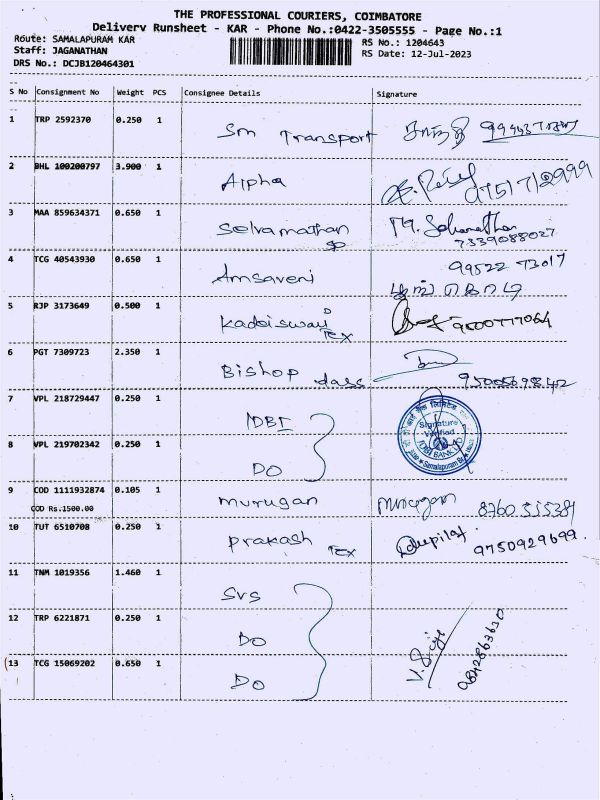 THE PROFESSIONAL COURIERS, COIMBATORE
Delivery Runsheet - KAR - Phone No.:0422-3505555 - Page No.:1
Route: SAMALAPURAM KAR
RS No.: 1204643
Staff: JAGANATHAN
RS Date: 12-Jul-2023
DRS No.: DCJB120464301
S No Consignment No Weight PCS Consignee Details Signature
1 TRP 2592370 0.250 1 Sm Transport
2 BHL 100200797 3.900 1 Alpha 9751712999
3 MAA 859634371 0.650 1 Selvamathan
7339088027
4 TCG 40543930 0.650 1 Amsaveni 99522 73017
பூங்கொடி
5 RJP 3173649 0.500 1 Tex 9500777064
6 PGT 7309723 2.350 1 Bishop dass
7 VPL 218729447 0.250 1 IDBI
Signature
Verified
IDBI BANK LTD
Samalapuram
8 VPL 219702342 0.250 1 DO
9 COD 1111932874 0.105 1 murugan murugan
COD Rs.1500.00
10 TUT 6510708 0.250 1 prakash Tex 9750929699
11 TNM 1019356 1.460 1 SVS
12 TRP 6221871 0.250 1 DO
13 TCG 15069202 0.650 1 DO